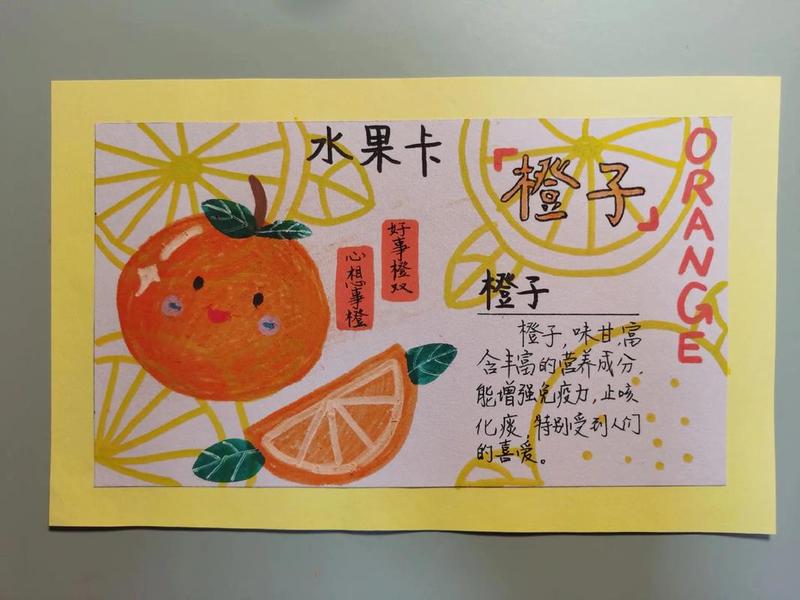 水果卡
「橙子」
ORANGE
好事橙双
心想事橙
橙子
橙子，味甘，富
含丰富的营养成分，
能增强免疫力，止咳
化痰，特别受到人们
的喜爱。